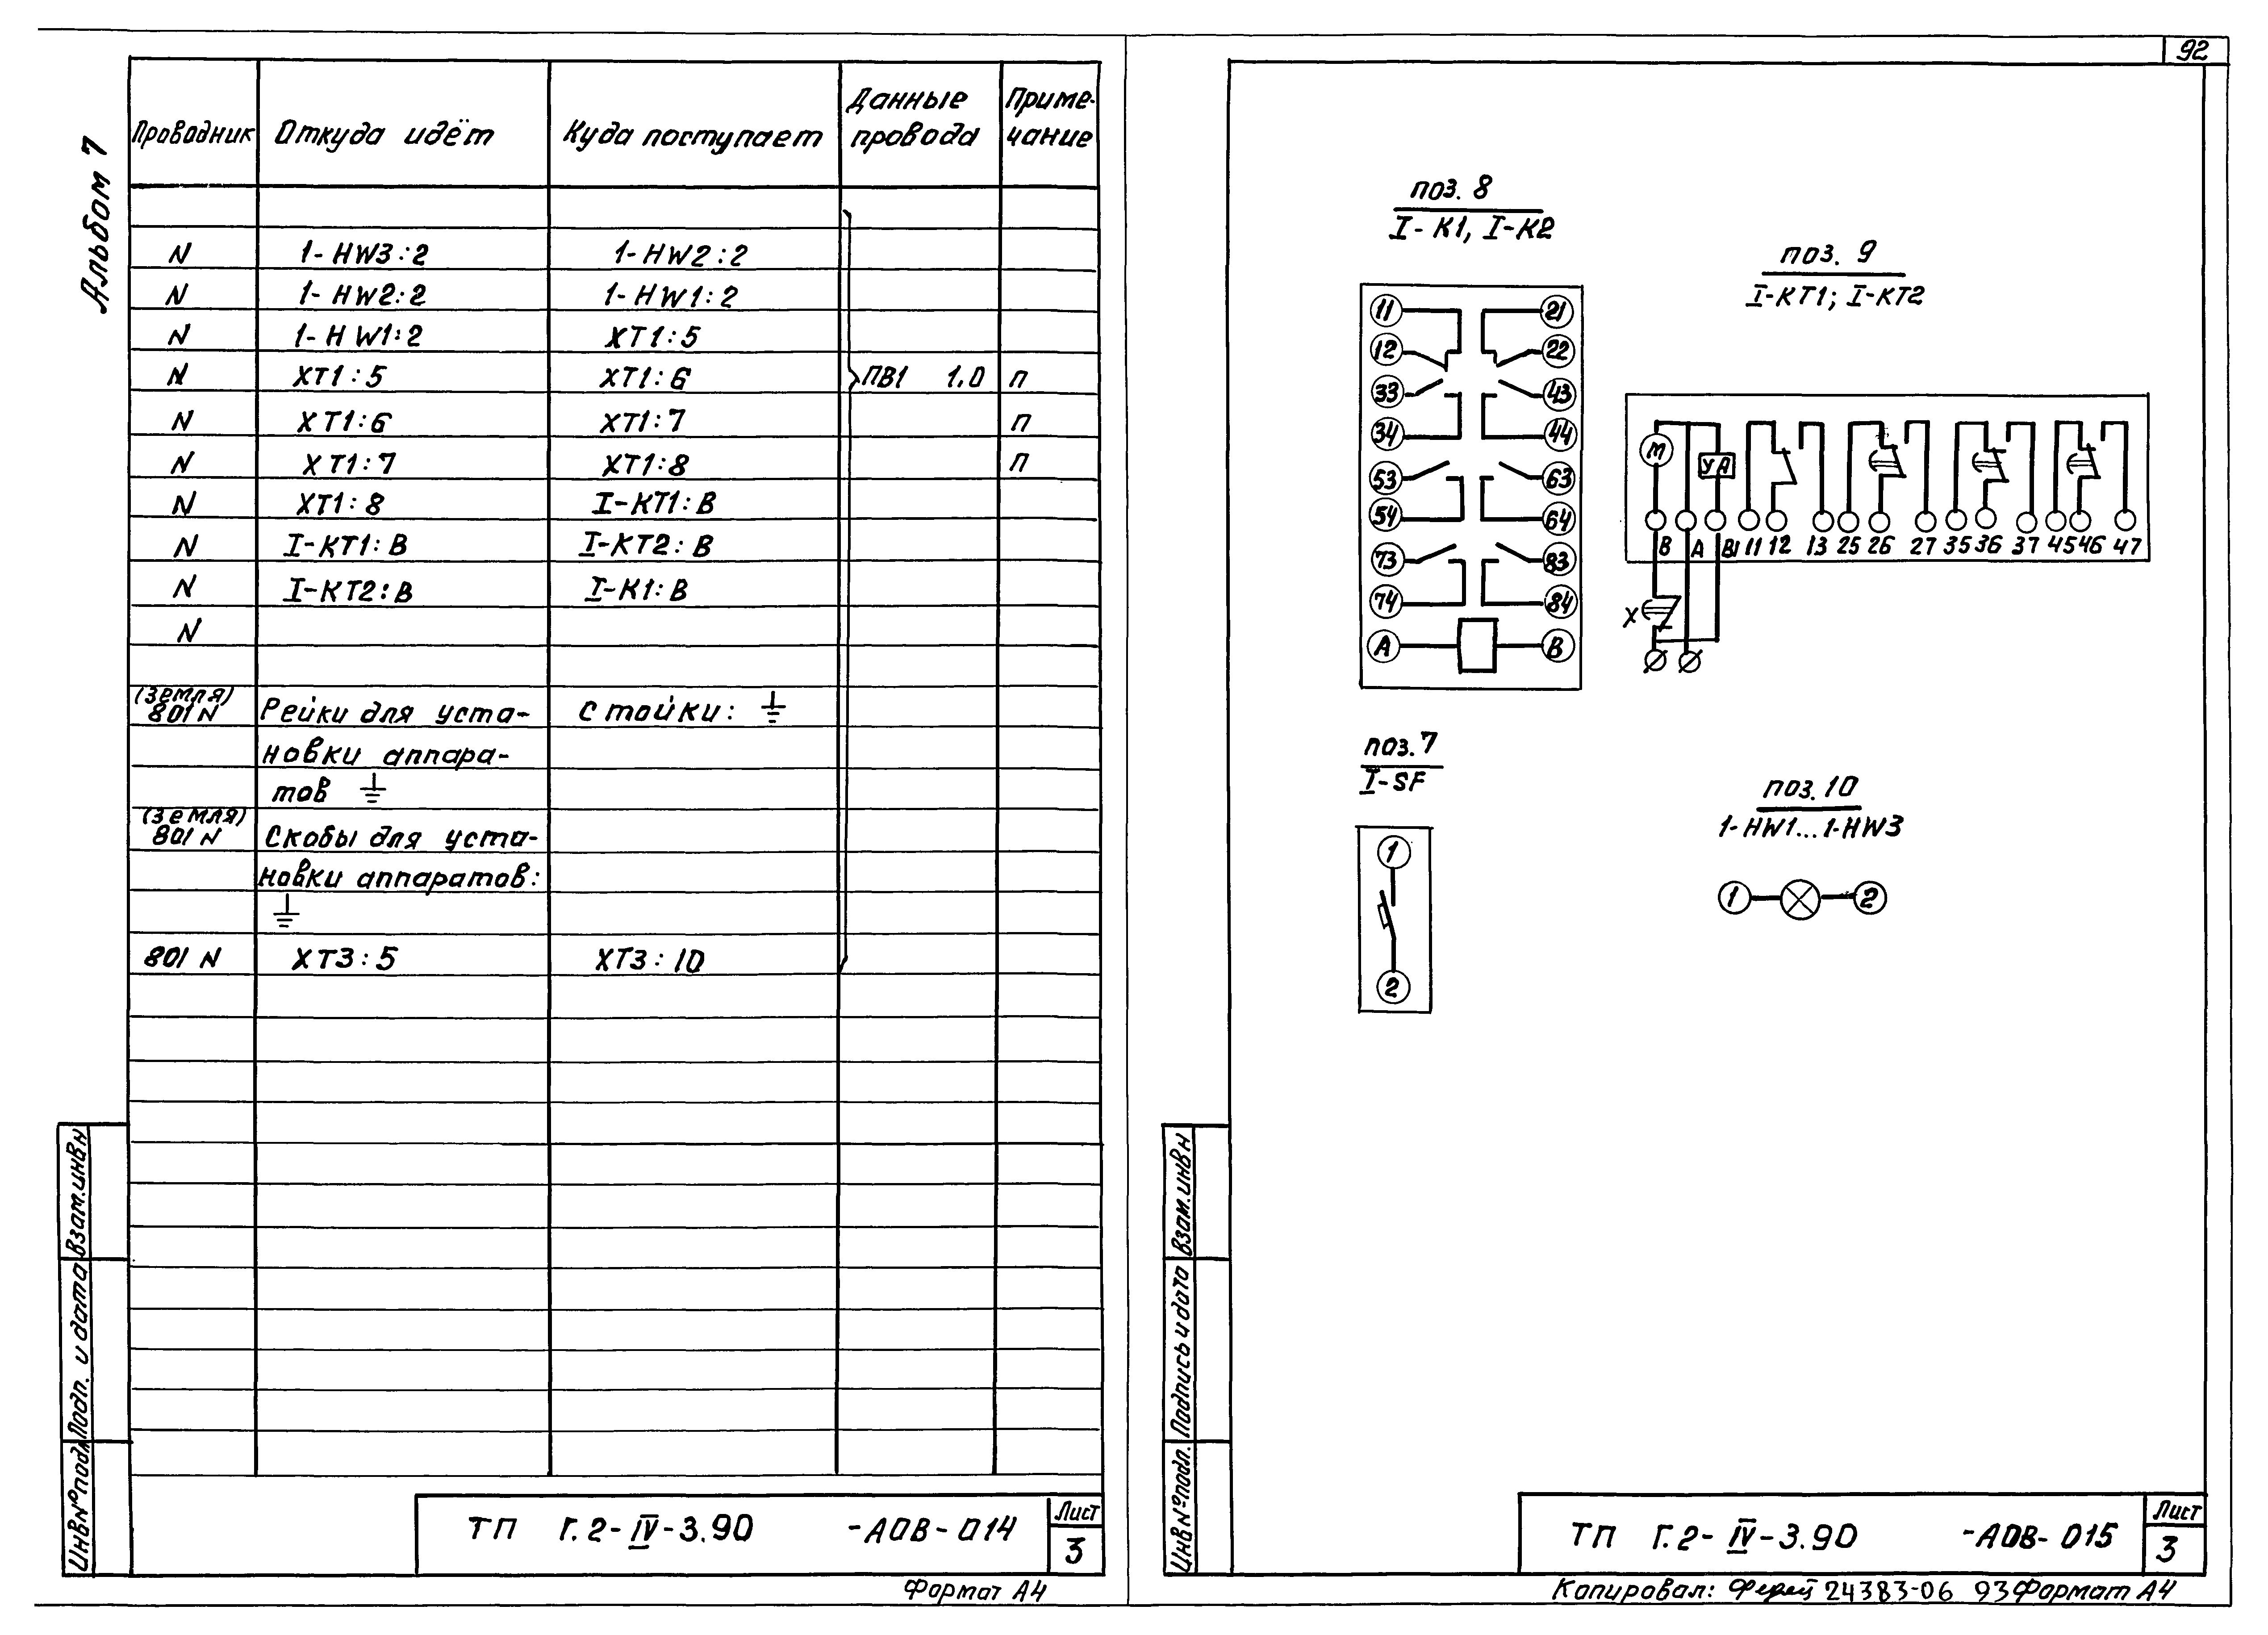 92
Альбом 7
Проводник Откуда идёт Куда поступает Данные провода Примечание
N 1-HW3:2 1-HW2:2
N 1-HW2:2 1-HW1:2
N 1-HW1:2 XT1:5
N XT1:5 XT1:6 ПВ1 1,0 п
N XT1:6 XT1:7 п
N XT1:7 XT1:8 п
N XT1:8 I-KT1:B
N I-KT1:B I-KT2:B
N I-KT2:B I-K1:B
N
(земля)
801 N Рейки для уста- стойки:
новки аппара-
тов
(земля)
801 N Скобы для уста-
новки аппаратов:
801 N XT3:5 XT3:10
Взам.инв н
Подп. и дата
Инв№подл
ТП Г.2-IV-3.90 -АОВ-014
Лист
3
Формат А4
поз. 8
I-K1, I-K2
11 21
12 22
33 43
34 44
53 63
54 64
73 83
74 84
A B
поз. 9
I-KT1; I-KT2
M УА
B A B1 11 12 13 25 26 27 35 36 37 45 46 47
X
поз.7
I-SF
1
2
поз.10
1-HW1...1-HW3
1 2
Взам.инв н
Подпись и дата
Инв№подл.
ТП Г.2-IV-3.90 -АОВ-015
Лист
3
Копировал: 24383-06 93 Формат А4